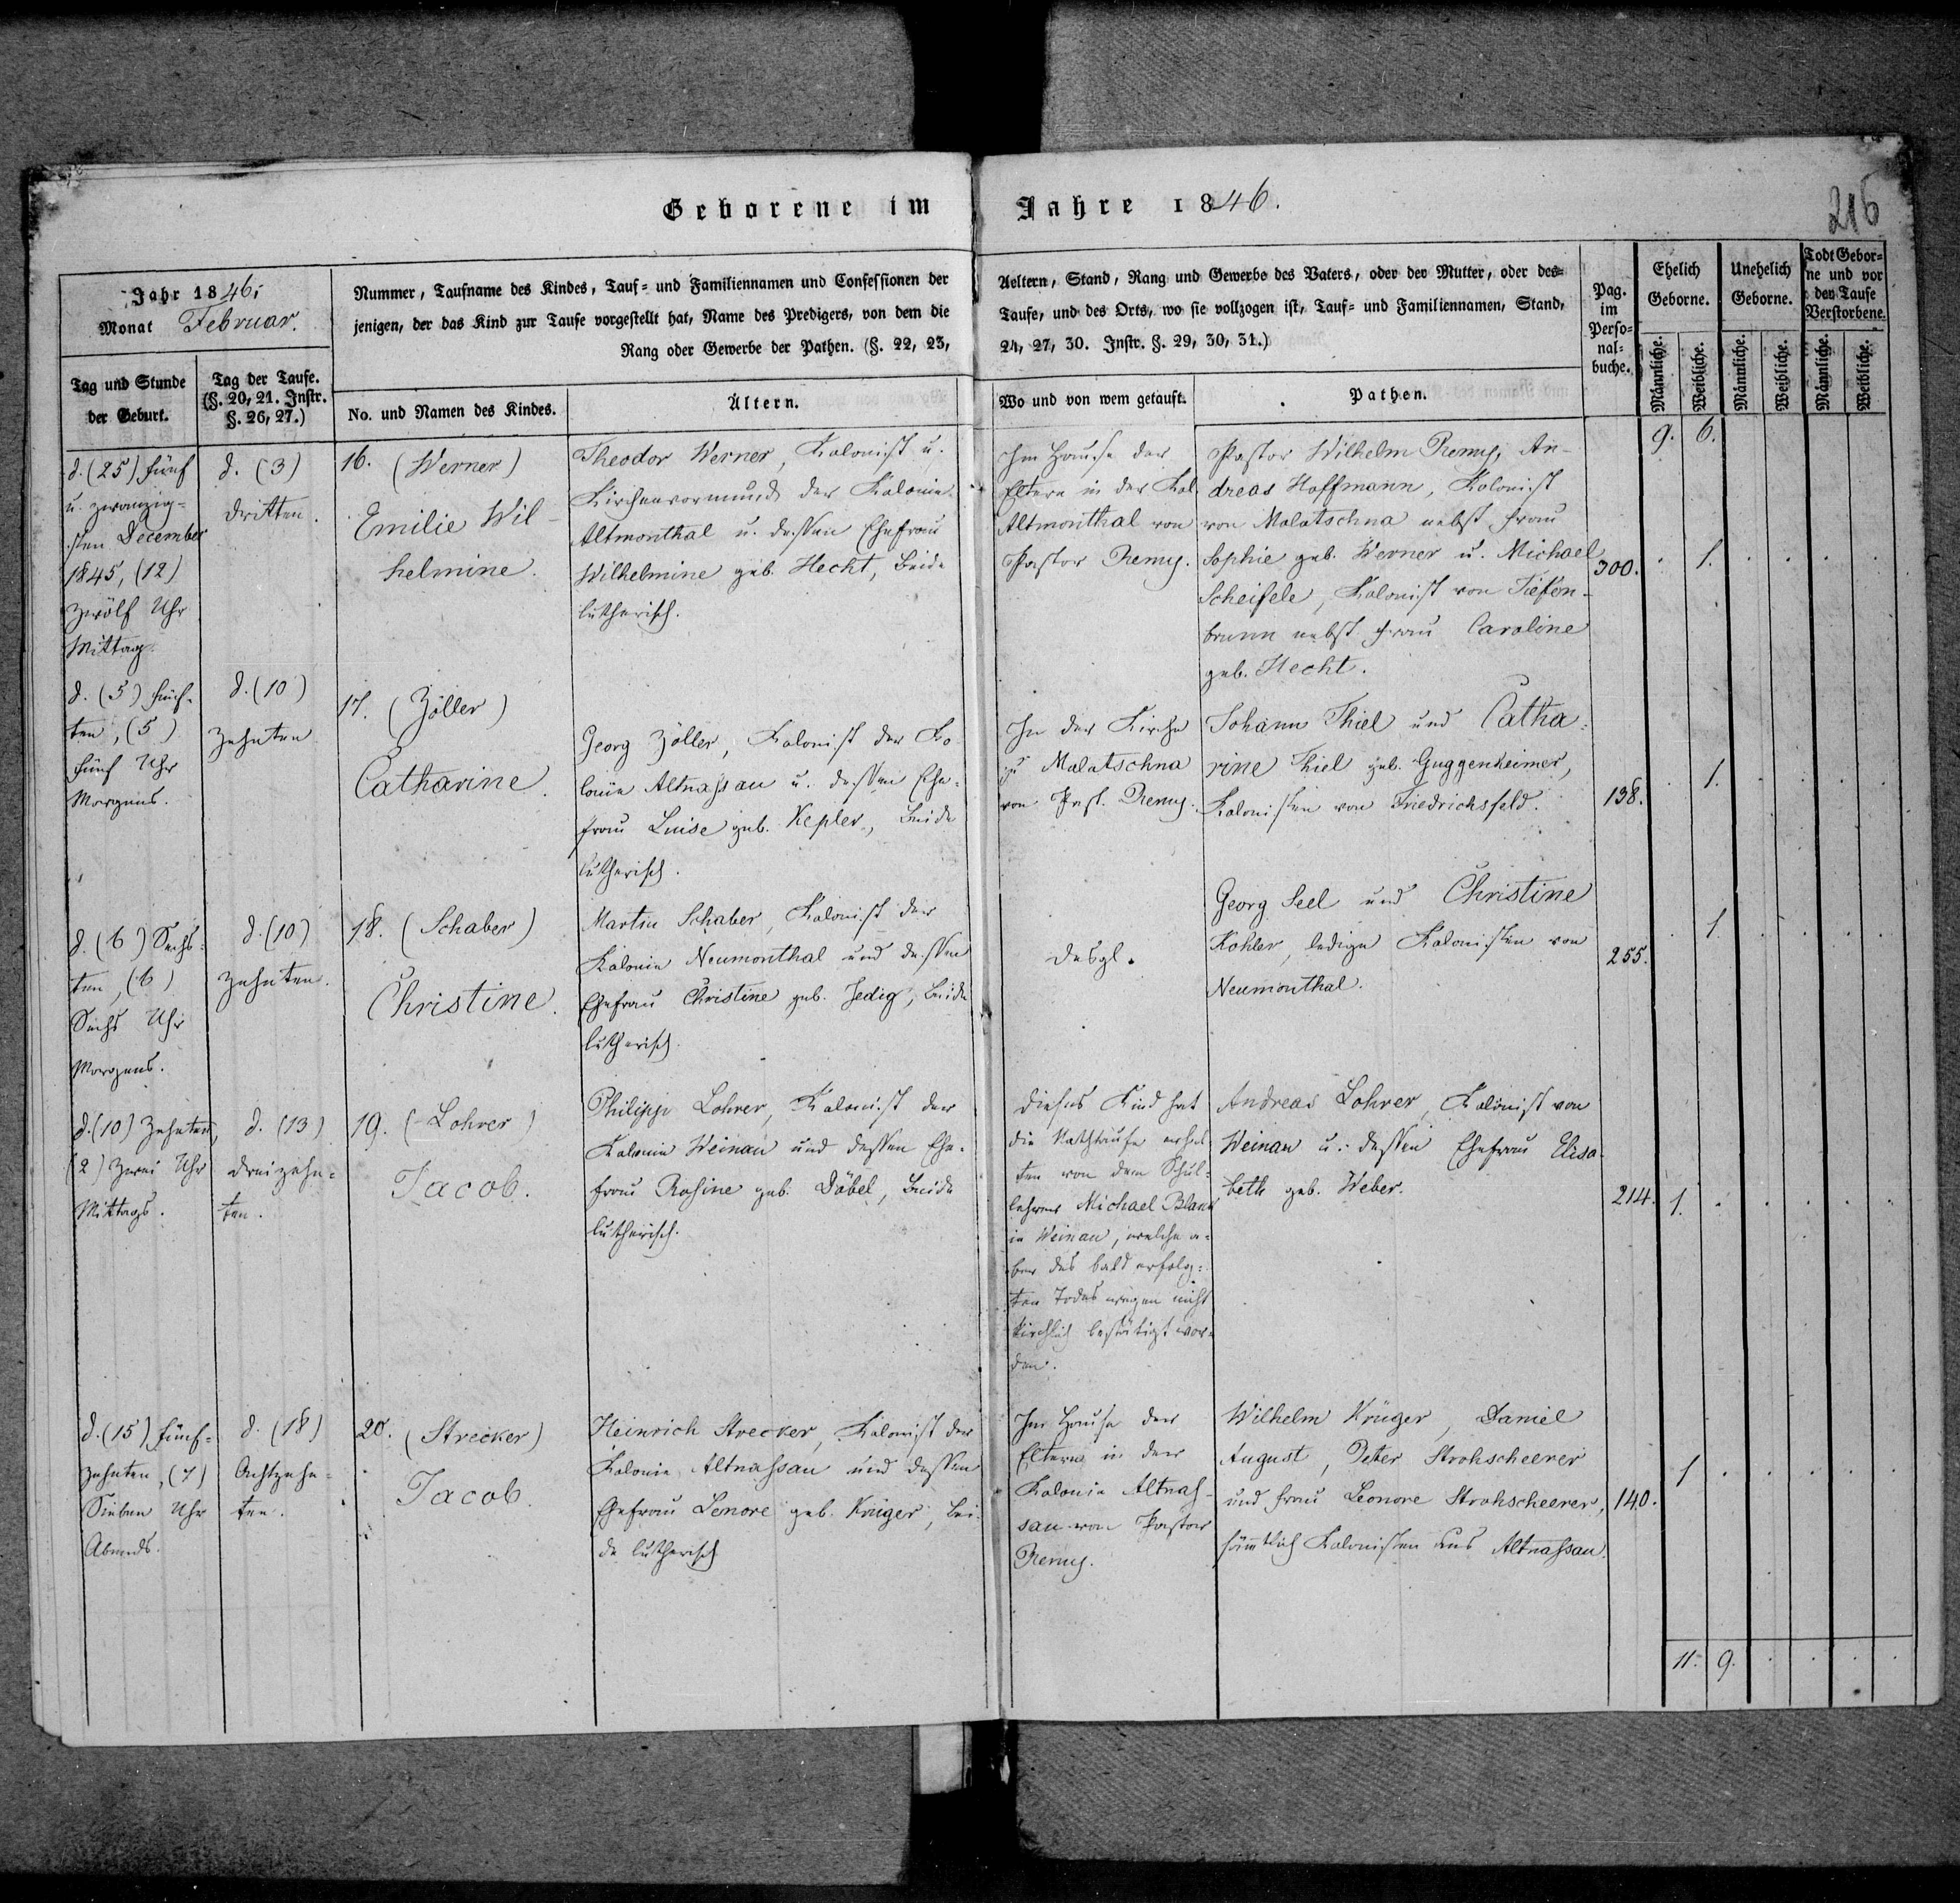 Geborene im Jahre 1846.
216
Jahr 1846.
Monat Februar.
Nummer, Taufname des Kindes, Tauf= und Familiennamen und Confessionen der Aeltern, Stand, Rang und Gewerbe des Vaters, oder der Mutter, oder des=
jenigen, der das Kind zur Taufe vorgestellt hat, Name des Predigers, von dem die Taufe, und des Orts, wo sie vollzogen ist, Tauf= und Familiennamen, Stand,
Rang oder Gewerbe der Pathen. (§. 22, 23, 24, 27, 30. Instr. §. 29, 30, 31.)
Tag und Stunde
der Geburt.
Tag der Taufe.
(§. 20, 21. Instr.
§. 26, 27.)
No. und Namen des Kindes.
Ältern.
Wo und von wem getauft.
Pathen.
Pag.
im
Perso=
nal=
buche.
Ehelich
Geborne.
Unehelich
Geborne.
Todt Gebor=
ne und vor
der Taufe
Verstorbene.
Männliche.
Weibliche.
Männliche.
Weibliche.
Männliche.
Weibliche.
9. 6.
d. (25) fünf
u. zwanzig=
sten December
1845, (12)
Zwölf Uhr
Mittag
d. (3)
dritten.
16. (Werner)
Emilie Wil-
helmine.
Theodor Werner, Kolonist u.
Kirchenvormund der Kolonie
Altmonthal u. dessen Ehefrau
Wilhelmine geb. Hecht, Beide
lutherisch.
Im Hause der
Eltern in der Kol.
Altmonthal von
Pastor Remy.
Pastor Wilhelm Remy, An-
dreas Hoffmann, Kolonist
von Molotschna nebst Frau
Sophie geb. Werner u. Michael
Scheifele, Kolonist von Tiefen-
brunn nebst Frau Caroline
geb. Hecht.
300. 1.
d. (5) fünf-
ten, (5)
fünf Uhr
Morgens.
d. (10)
zehnten
17. (Zöller)
Catharine.
Georg Zöller, Kolonist der Ko-
lonie Altnassau u. dessen Ehe-
frau Luise geb. Kepler, Beide
lutherisch.
In der Kirche
zu Molotschna
von Past. Remy.
Johann Thiel und Catha-
rine Thiel geb. Guggenheimer,
Kolonisten von Friedrichsfeld.
138. 1.
d. (6) Sechs-
ten, (6)
Sechs Uhr
Morgens.
d. (10)
zehnten.
18. (Schaber)
Christine.
Martin Schaber, Kolonist der
Kolonie Neumonthal und dessen
Ehefrau Christine geb. Jedig, Beide
lutherisch.
desgl.
Georg Seel und Christine
Kohler, ledige Kolonisten von
Neumonthal.
255. 1.
d. (10) Zehnten,
(2) Zwei Uhr
Mittags.
d. (13)
dreizehn-
ten.
19. (Lohrer)
Jacob.
Philipp Lohrer, Kolonist der
Kolonie Weinau und dessen Ehe-
frau Rosine geb. Döbel, Beide
lutherisch.
Dieses Kind hat
die Nothtaufe erhal-
ten von dem Schul-
lehrer Michael Blank
in Weinau, welche a-
ber des bald erfolg-
ten Todes wegen nicht
kirchlich bestätigt wor-
den.
Andreas Lohrer, Kolonist von
Weinau u. dessen Ehefrau Elisa-
beth geb. Weber.
214. 1.
d. (15) fünf-
zehnten, (7)
Sieben Uhr
Abends.
d. (18)
Achtzehn-
ten.
20. (Strecker)
Jacob.
Heinrich Strecker, Kolonist der
Kolonie Altnassau und dessen
Ehefrau Lenore geb. Krüger, Bei-
de lutherisch
Im Hause der
Eltern in der
Kolonie Altnas-
sau von Pastor
Remy.
Wilhelm Krüger, Daniel
August, Peter Strohscheerer
und Frau Leonore Strohscheerer,
sämtlich Kolonisten aus Altnassau.
140. 1
11. 9.